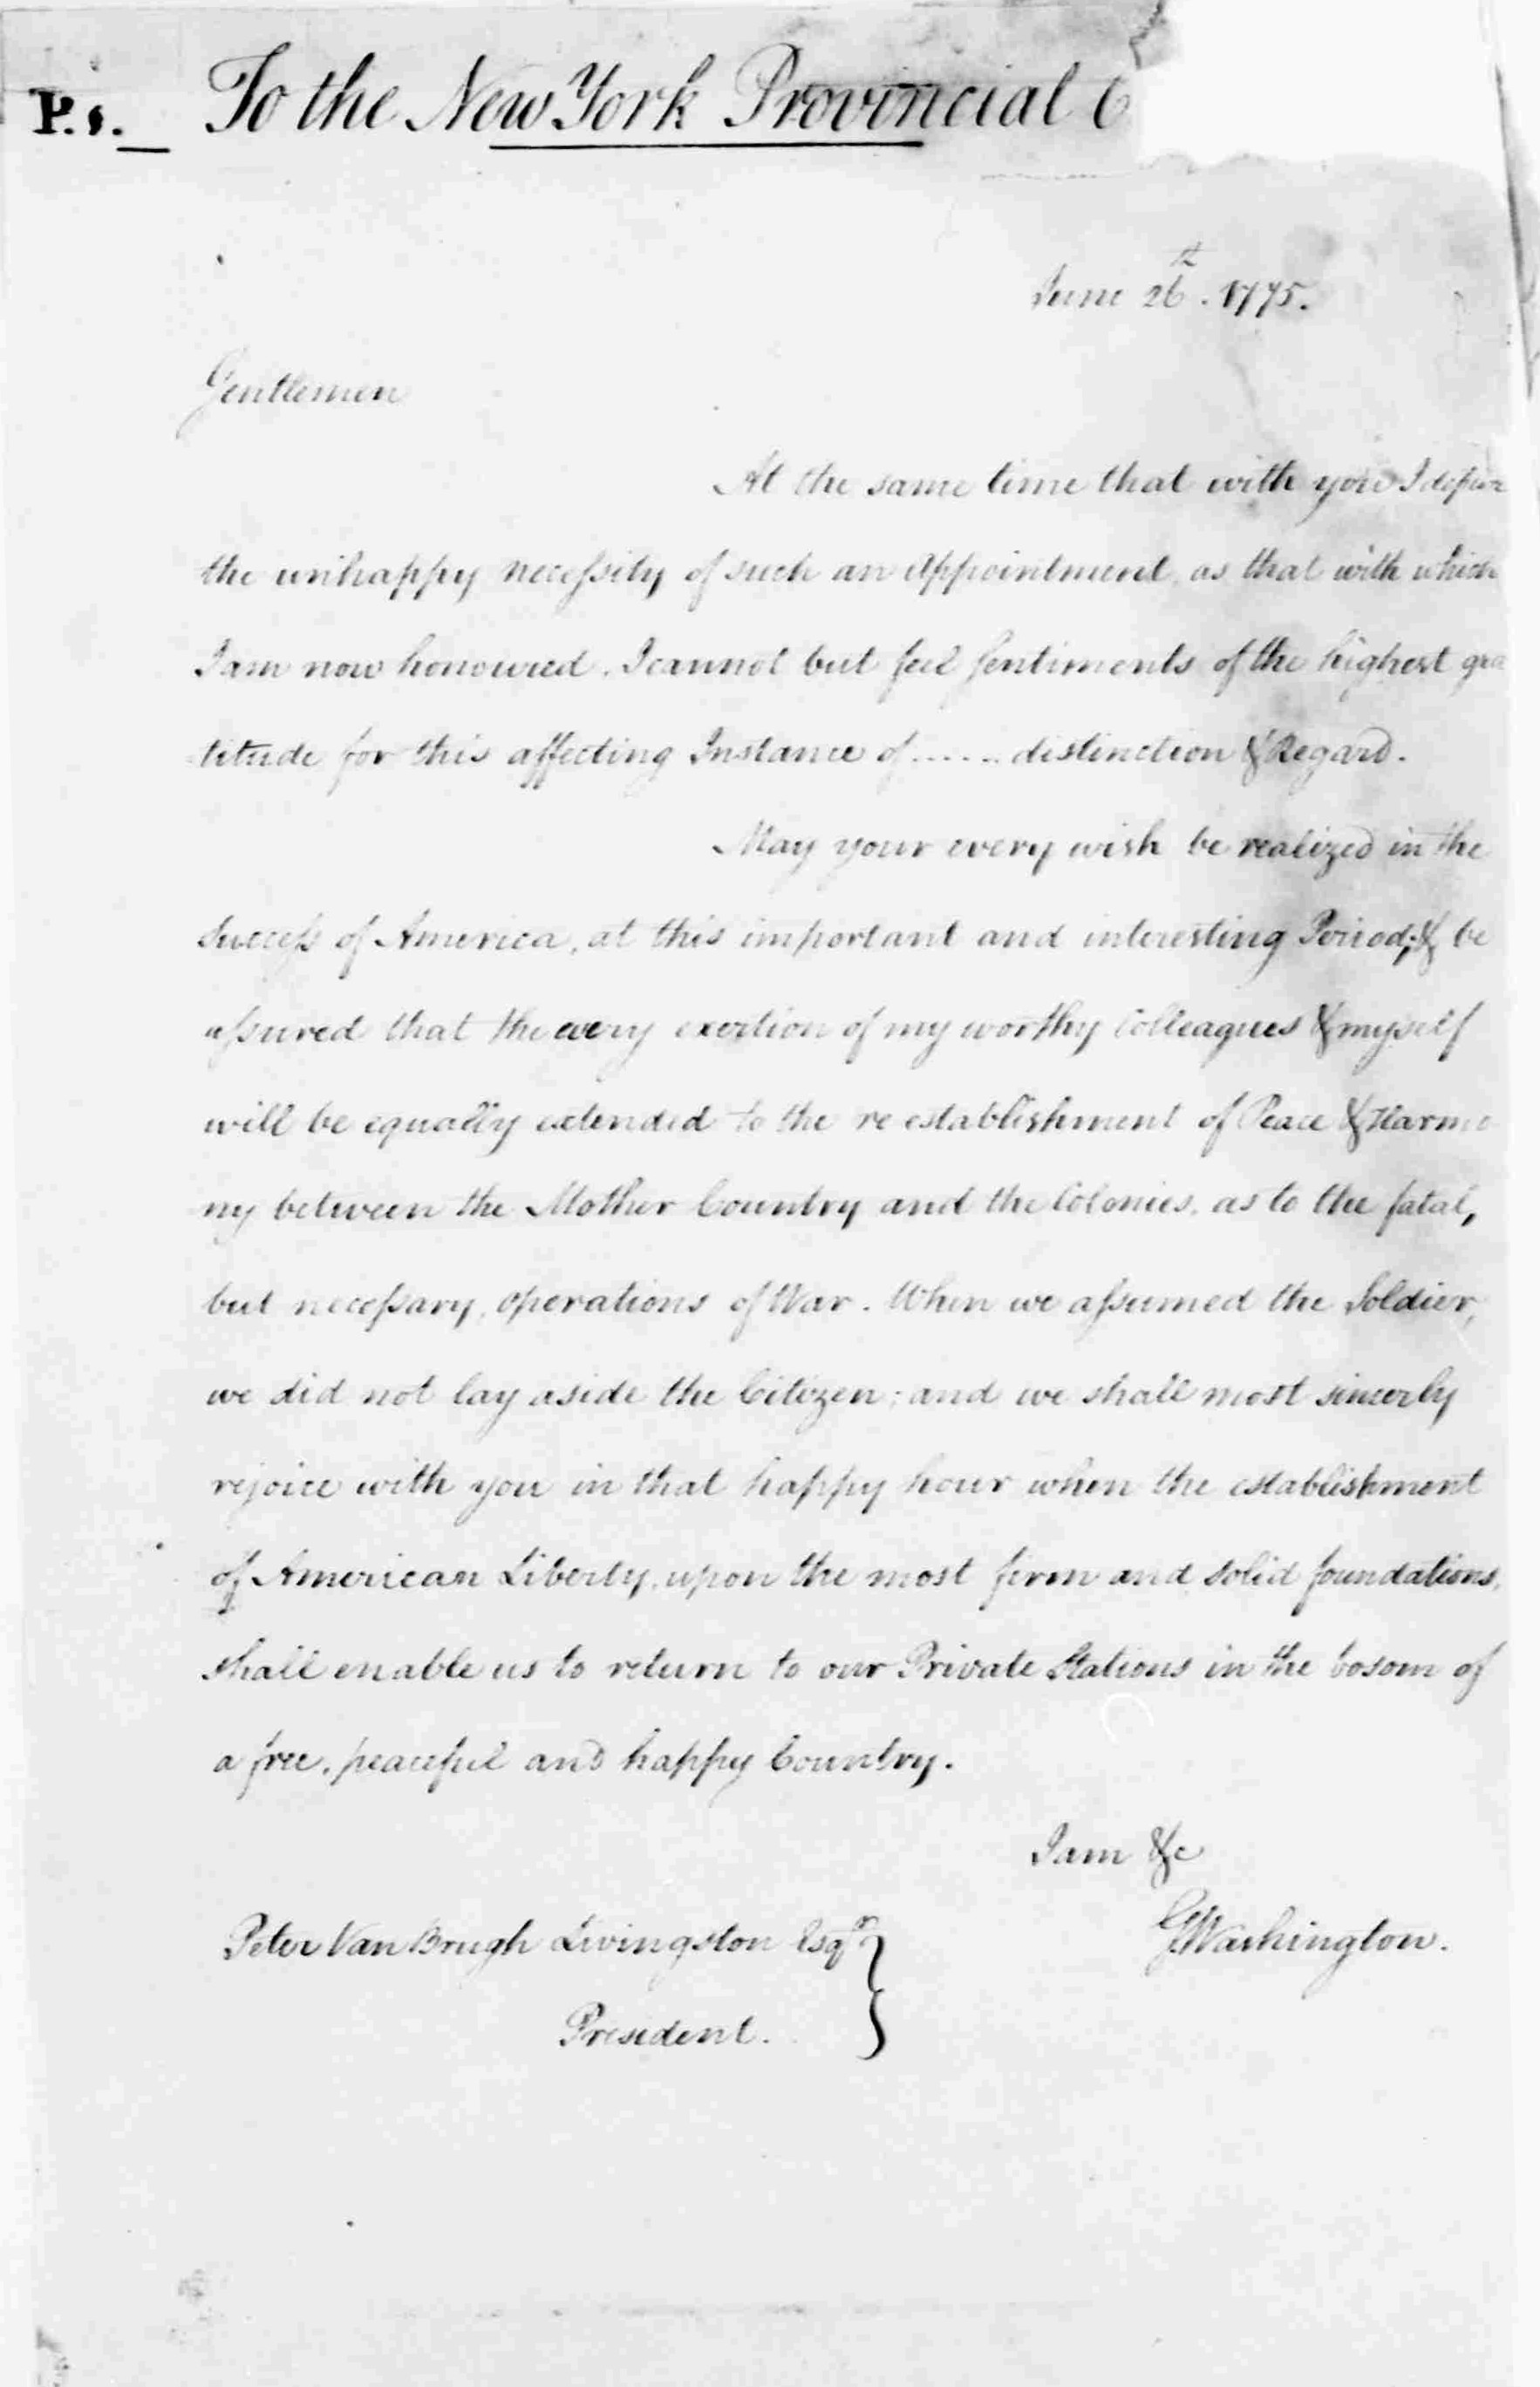 P.s. To the New York Provincial C
June 26th. 1775.
Gentlemen
At the same time that with you I deplore
the unhappy necessity of such an Appointment, as that with which
I am now honoured, I cannot but feel sentiments of the highest gra
titude for this affecting Instance of ...... distinction & Regard.
May your every wish be realized in the
success of America, at this important and interesting Period; & be
assured that the every exertion of my worthy Colleagues & myself
will be equally extended to the re establishment of Peace & Harmo
ny between the Mother Country and the Colonies, as to the fatal,
but necessary, operations of War. When we assumed the Soldier,
we did not lay aside the Citizen; and we shall most sincerly
rejoice with you in that happy hour when the establishment
of American Liberty, upon the most firm and solid foundations,
shall enable us to return to our Private Stations in the bosom of
a free, peaceful and happy Country.
I am &c
Peter Van Brugh Livingston Esqr
GWashington.
President.